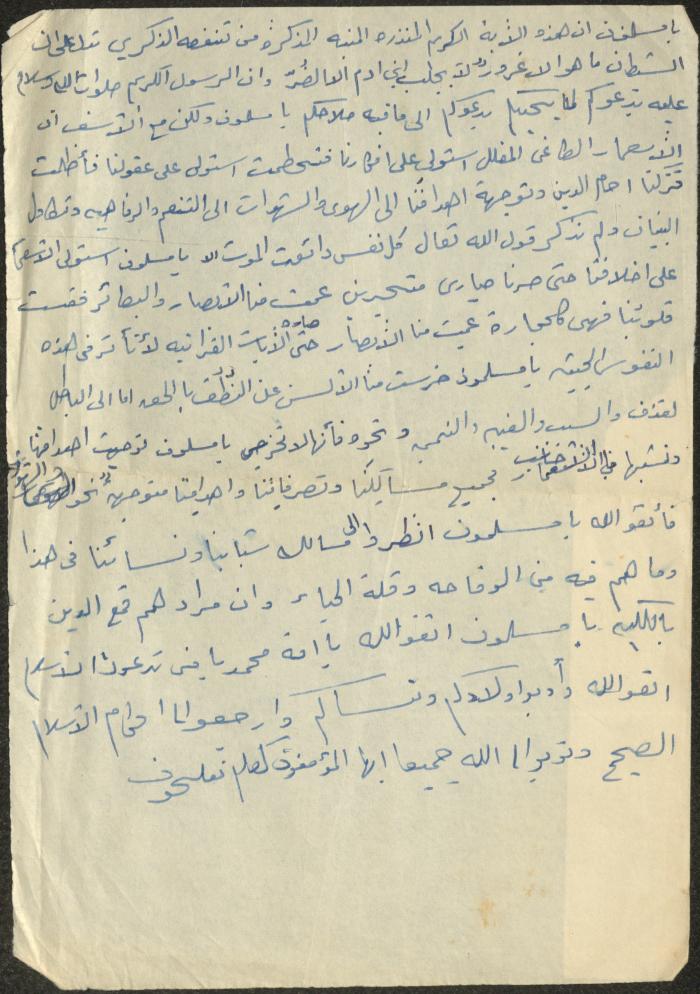 يا مسلمون ان هذه الاية الكريمة المنذره المنبه المذكرة من تنفعه الذكرى تدل على ان
الشيطان ما هو الا غرور ولا يجلب لبني ادم الا الضر وان الرسول الكريم صلوات الله وسلام
عليه يدعوكم لما يحييكم يدعوكم الى ما فيه صلاحكم يا مسلمون ولكن مع الأسف ان
الأستعمار الطاغي المضلل استولى على افكارنا فتحطمت استولى على عقولنا فأظلمت
فتركنا احكام الدين وتوجهة اهدافنا الى الهوى والشهوات الى التنعم والرفاهيه وتطاول
البنيان ولم نذكر قول الله تعالى كل نفس ذائقت الموت الا يا مسلمون استولى الأستعمار
على اخلاقنا حتى صرنا حيارى متحيرين عميت منا الأبصار والبصائر فقست
قلوبنا فهي كالحجارة عميت منا الأبصار حتى صارة الأيات القرانيه لا تأثر في هذه
النفوس الخبيثه يا مسلمون خرست منا الألسن عن النطق بالحق اما الى الباطل
لقذف والسب والغيبه والنميمه ونحوه فأنها لا تخرص يا مسلمون توجهت اهدافنا
ونسبها الأستعمار جميع مسالكنا وتصرفاتنا واهدافنا متوجهة نحو
فأتقو الله يا مسلمون انظروا الى مسالك شبابنا ونسائنا في هذا
وما هم فيه من الوقاحه وقلة الحياء وان مرادهم قمع الدين
بالكليه يا مسلمون اتقو الله يا امة محمد يا من تدعون الأسلام
اتقو الله وأدبوا اولادكم ونساكم وارجعوا الى احكام الأسلام
الصحيح وتوبوا الى الله جميعا ايها المؤمنون لعلكم تفلحون